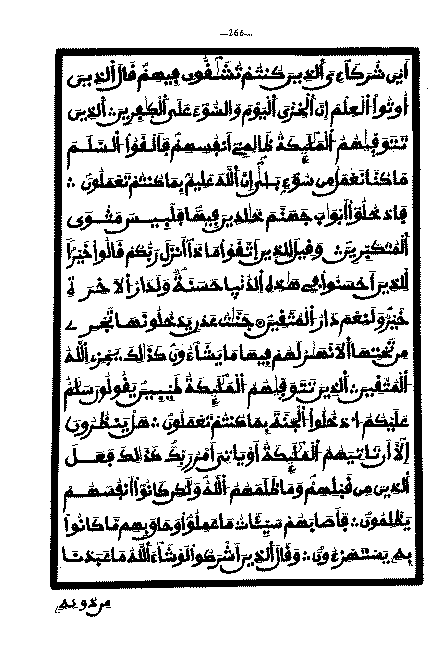 —266—
أَيْنَ شُرَكَاءِيَ الذِينَ كُنتُمْ تُشَٰقُّونِ فِيهِمْ قَالَ الذِينَ
أُوتُوا الْعِلْمَ إِنَّ الْخِزْيَ الْيَوْمَ وَالسُّوءَ عَلَى الْكٰفِرِينَ ∴ الذِينَ
تَتَوَفّٰيهُمُ الْمَلٰئِكَةُ ظَالِمِي أَنفُسِهِمْ فَأَلْقَوُا السَّلَمَ
مَا كُنَّا نَعْمَلُ مِن سُوءٍ بَلٰى إِنَّ اللَّهَ عَلِيمٌ بِمَا كُنتُمْ تَعْمَلُونَ ∴
فَادْخُلُوا أَبْوَابَ جَهَنَّمَ خٰلِدِينَ فِيهَا فَلَبِيسَ مَثْوَى
الْمُتَكَبِّرِينَ ∴ وَقِيلَ لِلذِينَ اتَّقَوْا مَاذَا أَنزَلَ رَبُّكُمْ قَالُوا خَيْرًا
لِلذِينَ أَحْسَنُوا فِي هٰذِهِ الدُّنْيَا حَسَنَةٌ وَلَدَارُ الَاخِرَةِ
خَيْرٌ وَلَنِعْمَ دَارُ الْمُتَّقِينَ جَنّٰتُ عَدْنٍ يَدْخُلُونَهَا تَجْرِي
مِن تَحْتِهَا الَانْهٰرُ لَهُمْ فِيهَا مَا يَشَاءُونَ كَذٰلِكَ يَجْزِي اللَّهُ
الْمُتَّقِينَ ∴ الذِينَ تَتَوَفّٰيهُمُ الْمَلٰئِكَةُ طَيِّبِينَ يَقُولُونَ سَلٰمٌ
عَلَيْكُمُ ادْخُلُوا الْجَنَّةَ بِمَا كُنتُمْ تَعْمَلُونَ ∴ هَلْ يَنظُرُونَ
إِلَّا أَن تَاتِيَهُمُ الْمَلٰئِكَةُ أَوْ يَاتِيَ أَمْرُ رَبِّكَ كَذٰلِكَ فَعَلَ
الذِينَ مِن قَبْلِهِمْ وَمَا ظَلَمَهُمُ اللَّهُ وَلٰكِن كَانُوا أَنفُسَهُمْ
يَظْلِمُونَ ∴ فَأَصَابَهُمْ سَيِّئَاتُ مَا عَمِلُوا وَحَاقَ بِهِم مَّا كَانُوا
بِهِ يَسْتَهْزِءُونَ ∴ وَقَالَ الذِينَ أَشْرَكُوا لَوْ شَاءَ اللَّهُ مَا عَبَدْنَا
مِن دُونِهِ